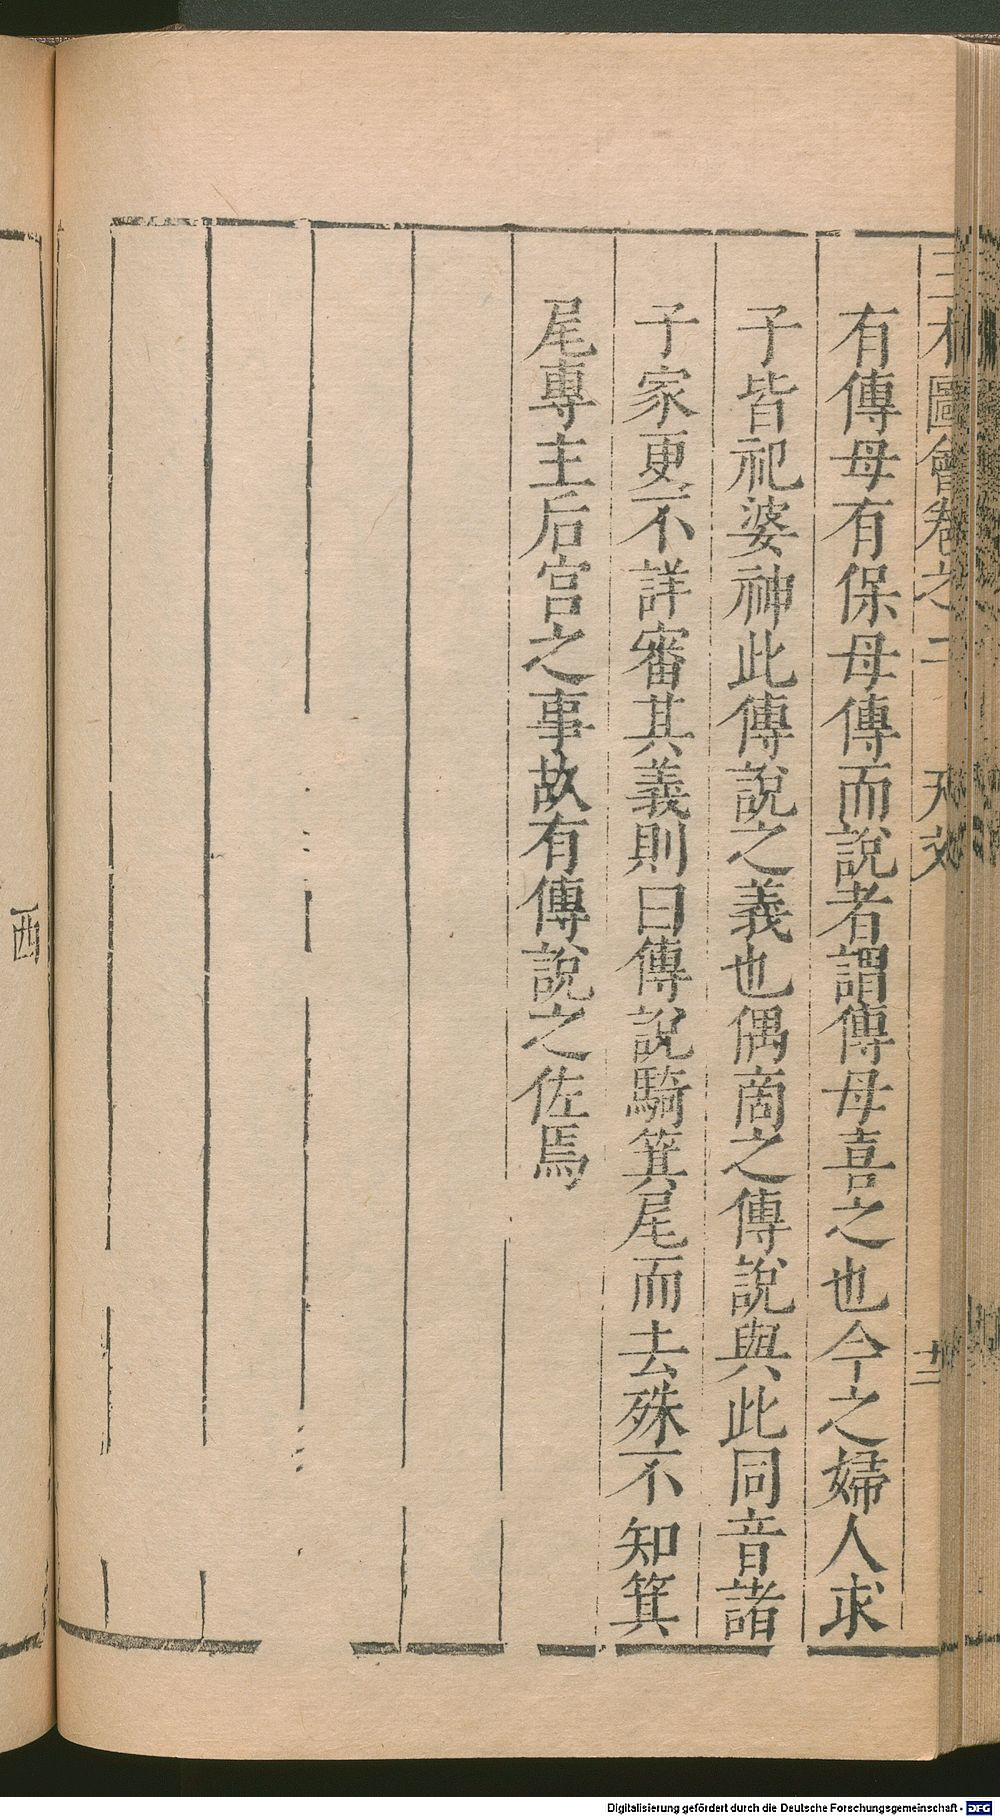 三才圖會卷之二 天文 廿二
有傳母有保母傳而說者謂傳母喜之也今之婦人求
子皆祀婆神此傳說之義也偶商之傳說與此同音諸
子家更不詳審其義則曰傳說騎箕尾而去殊不知箕
尾專主后宫之事故有傳說之佐焉
西
Digitalisierung gefördert durch die Deutsche Forschungsgemeinschaft - DFG